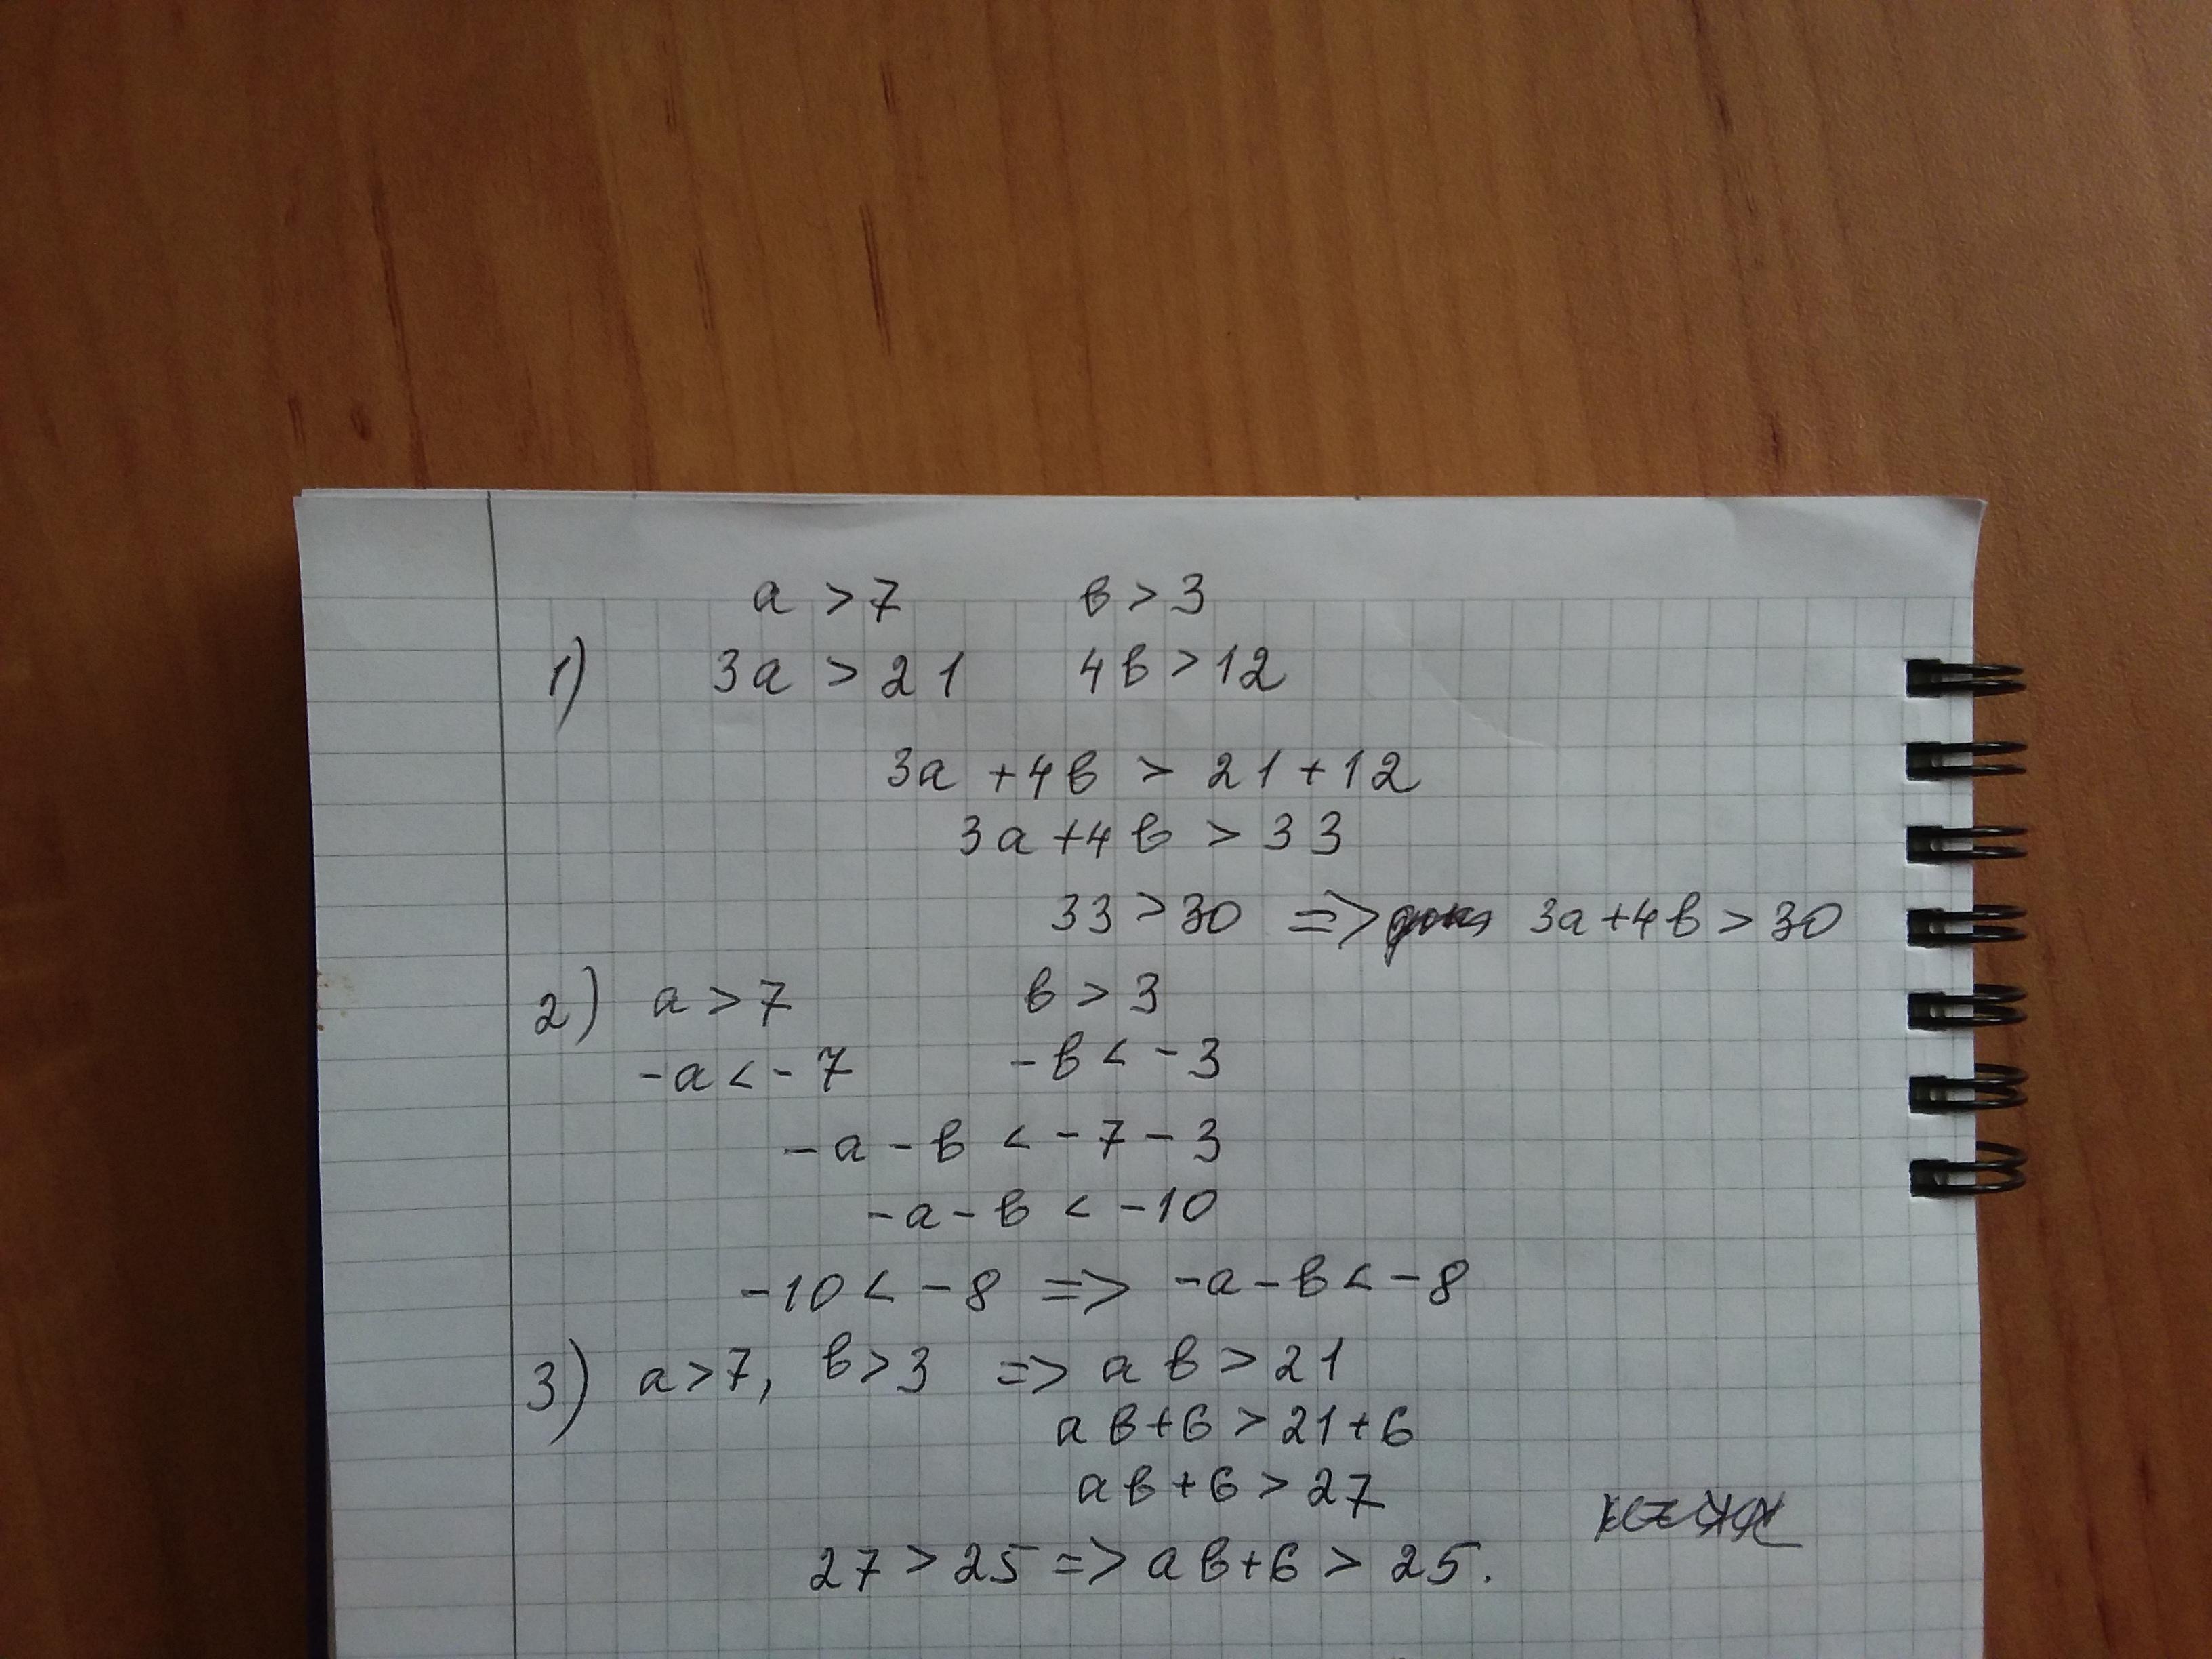 a > 7 в > 3
1) 3a > 21 4в > 12
3a + 4в > 21 + 12
3a + 4в > 33
33 > 30 => 3a + 4в > 30
2) a > 7 в > 3
-a < -7 -в < -3
-a - в < -7 - 3
-a - в < -10
-10 < -8 => -a - в < -8
3) a > 7, в > 3 => aв > 21
aв + 6 > 21 + 6
aв + 6 > 27
27 > 25 => aв + 6 > 25.